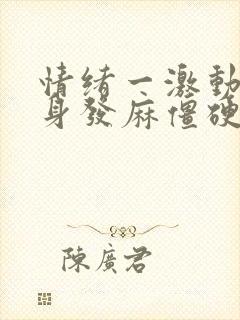 情緒一激動
身發麻僵硬
陳廣君